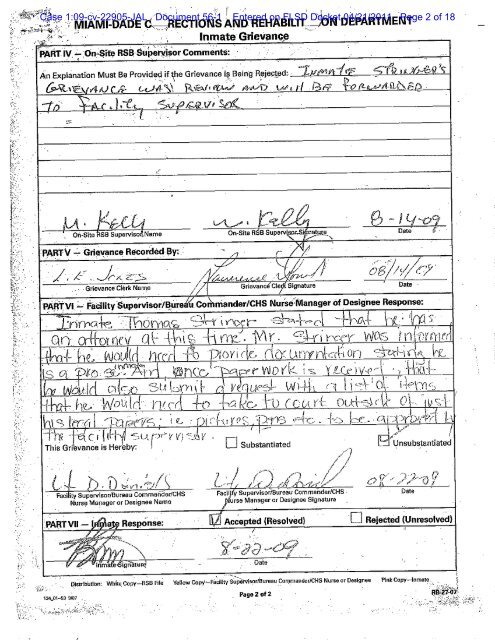 Case 1:09-cv-22905-JAL Document 56-1 Entered on FLSD Docket 04/21/2011 Page 2 of 18
MIAMI-DADE C RECTIONS AND REHABILIT ON DEPARTMENT
Inmate Grievance
PART IV — On-Site RSB Supervisor Comments:
An Explanation Must Be Provided if the Grievance is Being Rejected: INMATE STRINGER'S
GRIEVANCE WAS REVIEW AND WILL BE FORWARDED
TO FACILITY SUPERVISOR
M. Kelly M. Kelly 8-14-09
On-Site RSB Supervisor Name On-Site RSB Supervisor Signature Date
PART V — Grievance Recorded By:
08/14/09
Grievance Clerk Name Grievance Clerk Signature Date
PART VI — Facility Supervisor/Bureau Commander/CHS Nurse Manager of Designee Response:
Inmate Thomas Stringer stated that he has
an attorney at this time. Mr. Stringer was informed
that he would need to provide documentation stating he
is a pro-se inmate. And once paperwork is received, that
he would also submit a request with a list of items
that he would need to take to court outside of just
his legal papers, i.e. pictures, pens etc. to be approved by
the facility supervisor.
This Grievance is Hereby: Substantiated Unsubstantiated
Lt D. Daniels 08-22-09
Facility Supervisor/Bureau Commander/CHS Facility Supervisor/Bureau Commander/CHS Date
Nurse Manager or Designee Name Nurse Manager or Designee Signature
PART VII — Inmate Response: Accepted (Resolved) Rejected (Unresolved)
8-22-09
Inmate Signature Date
Distribution: White Copy—RSB File Yellow Copy—Facility Supervisor/Bureau Commander/CHS Nurse or Designee Pink Copy—Inmate
Page 2 of 2